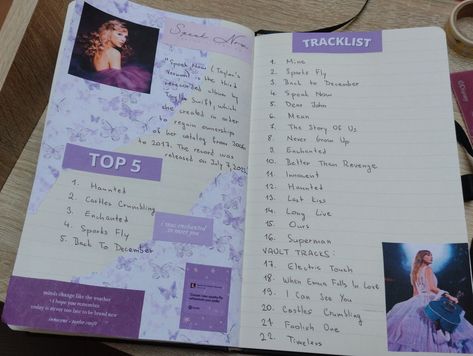 Speak Now
"Speak Now (Taylor's
Version) is the third
re-recorded album by
Taylor Swift, which
she created in order
to regain ownership
of her catalog from 2006
to 2017. The record was
released on July 7, 2023.
TOP 5
1. Haunted
2. Castles Crumbling
3. Enchanted
4. Sparks Fly
5. Back To December
i was enchanted
to meet you
minds change like the weather
i hope you remember
today is never too late to be brand new
innocent - taylor swift
TRACKLIST
1. Mine
2. Sparks Fly
3. Back to December
4. Speak Now
5. Dear John
6. Mean
7. The Story Of Us
8. Never Grow Up
9. Enchanted
10. Better Than Revenge
11. Innocent
12. Haunted
13. Last Kiss
14. Long Live
15. Ours
16. Superman
VAULT TRACKS:
17. Electric Touch
18. When Emma Falls In Love
19. I Can See You
20. Castles Crumbling
21. Foolish One
22. Timeless